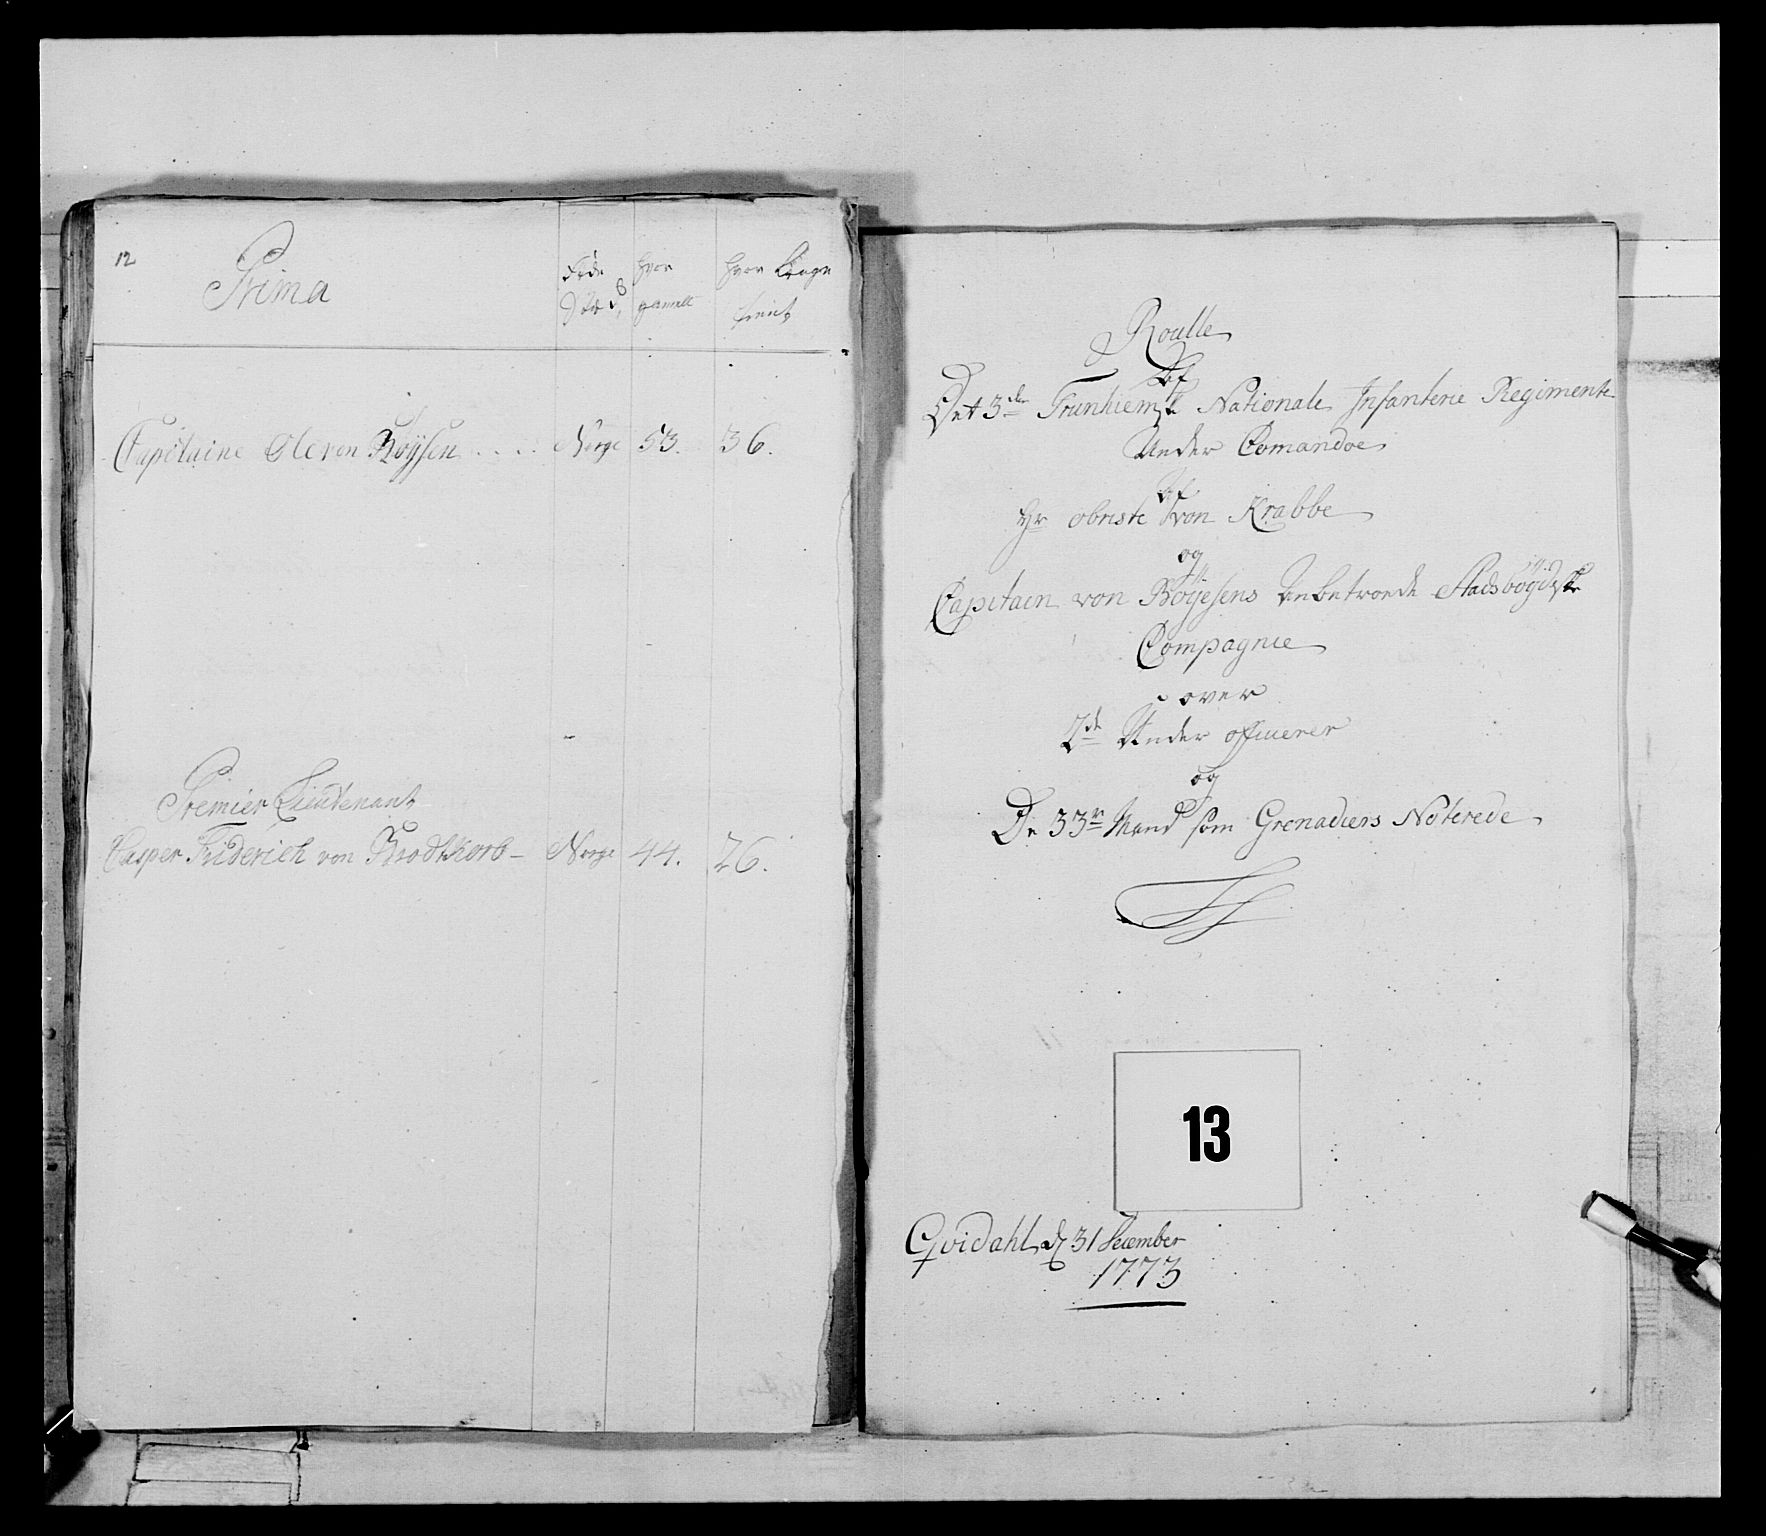 12
Prima
Føde Stæd,
hvor gammelt
hvor Længe tient
Capitaine Ole von Böysen . . . . Norge 53. 36.
Premier Lieutenant
Casper Friderich von Brodtkorb - Norge 44. 26.
Roulle
Af
Det 3de Trunhiemske Nationale Infanterie Regimente
Under Comandoe
Af
Hr obriste von Krabbe
og
Capitain von Böyesens Anbetroede Stadsbøygdske
Compagnie
over
2de Under officerer
og
De 33re Mand som Grenadiers Noterede
13
Qvidahl d 31 December
1773